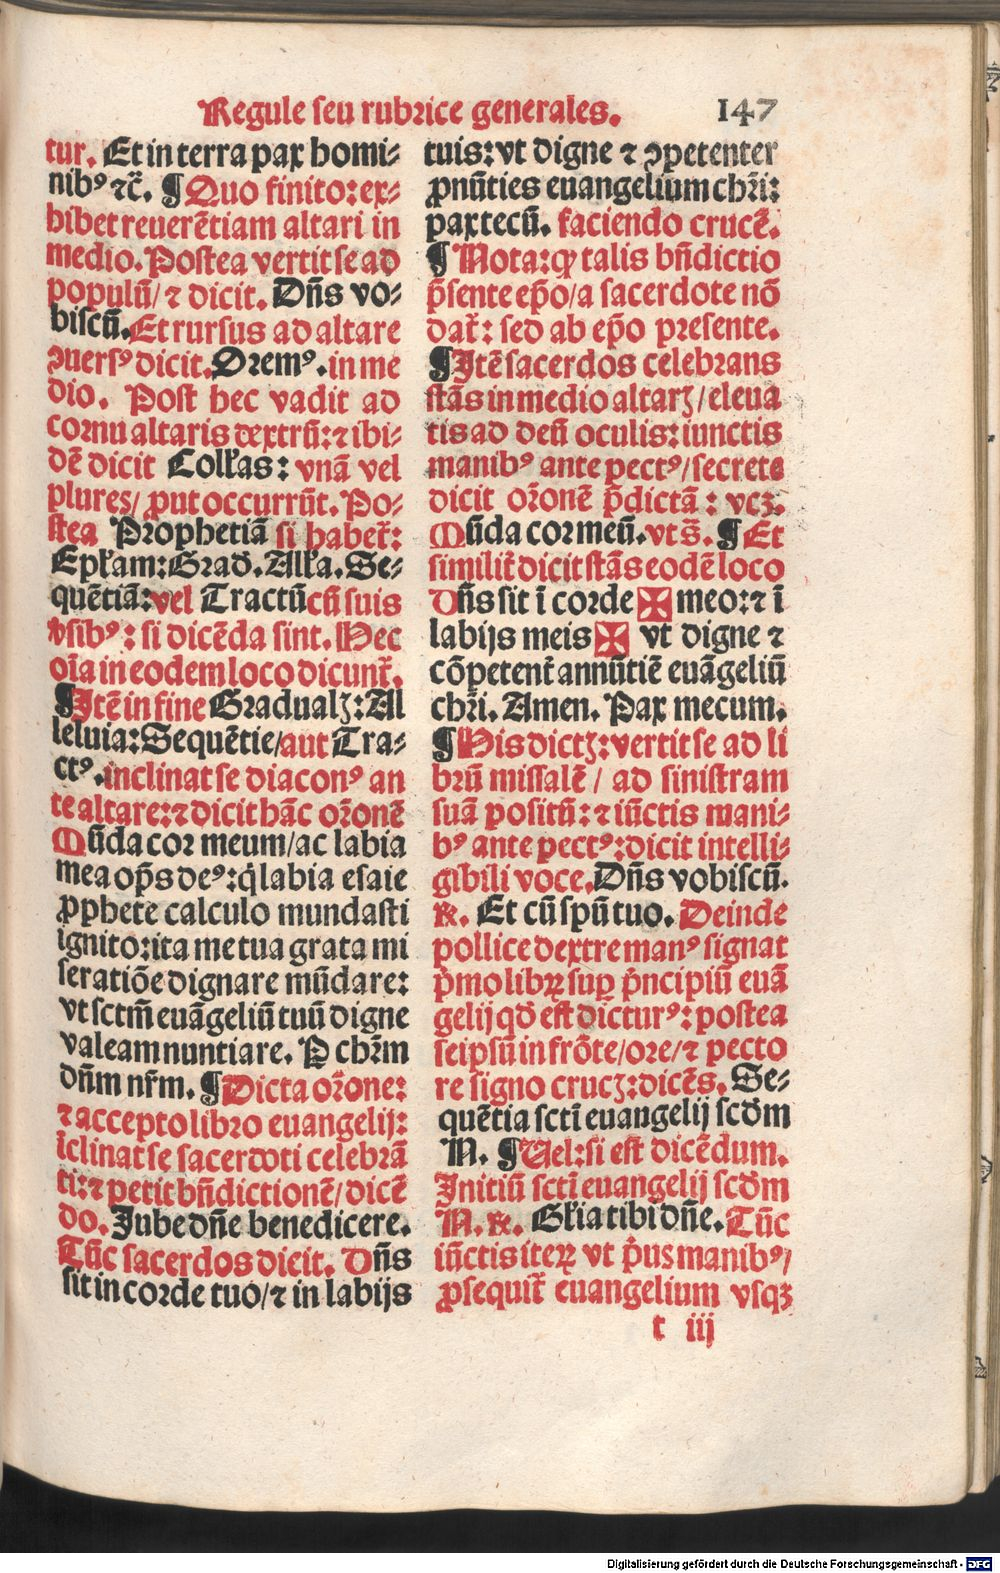 Regule seu rubrice generales. 147
tur. Et in terra pax homi-
nibꝰ ⁊c̄. ¶ Quo finito: ex-
hibet reuerētiam altari in
medio. Postea vertit se ad
populū/ ⁊ dicit. Dn̄s vo-
biscū. Et rursus ad altare
ꝯuersꝰ dicit. Oremꝰ. in me
dio. Post hec vadit ad
cornu altaris dextrū: ⁊ ibi-
dē dicit Coll̄as: vnā vel
plures/ ꝓut occurrūt. Po-
stea Prophetiā si habet̄:
Epl̄am: Grad̄. All̄a. Se-
quētiā: vel Tractū cū suis
v̄sibꝰ: si dicēda sint. Hec
oīa in eodem loco dicunt̄.
¶ Itē in fine Gradualꝫ: Al
leluia: Sequētie/ aut Tra-
ctꝰ. inclinat se diaconꝰ an
te altare: ⁊ dicit hāc or̄onē
Mūda cor meum/ ac labia
mea op̄s deꝰ: q̄ labia esaie
ꝓphete calculo mundasti
ignito: ita me tua grata mi
seratiōe dignare mūdare:
vt sctm̄ euāgeliū tuū digne
valeam nuntiare. P chr̄m
dn̄m nr̄m. ¶ Dicta or̄one:
⁊ accepto libro euangelij:
īclinat se sacerdoti celebrā
ti: ⁊ petit bn̄dictionē/ dicē
do. Jube dn̄e benedicere.
Tūc sacerdos dicit. Dn̄s
sit in corde tuo/ ⁊ in labijs
tuis: vt digne ⁊ ꝯpetenter
ꝓnūties euangelium chr̄i:
pax tecū. faciendo crucē.
¶ Nota: ꝙ talis bn̄dictio
p̄sente ep̄o/ a sacerdote nō
dat̄: sed ab ep̄o presente.
¶ Itē sacerdos celebrans
stās in medio altarꝫ/ eleua
tis ad deū oculis: iunctis
manibꝰ ante pectꝰ/ secrete
dicit or̄onē p̄dictā: vcꝫ.
Mūda cor meū. vt s̄. ¶ Et
similit̄ dicit stās eodē loco
Dn̄s sit ī corde ✠ meo: ⁊ ī
labijs meis ✠ vt digne ⁊
cōpetent̄ annūtiē euāgeliū
chr̄i. Amen. Pax mecum.
¶ His dictꝫ: vertit se ad li
brū missalē / ad sinistram
suā positū: ⁊ iūctis mani-
bꝰ ante pectꝰ: dicit intelli-
gibili voce. Dn̄s vobiscū.
℟. Et cū spū tuo. Deinde
pollice dextre manꝰ signat
p̄mo libꝝ suꝑ p̄ncipiū euā
gelij qd̄ est dicturꝰ: postea
seipsū in frōte/ ore/ ⁊ pecto
re signo crucꝫ: dicēs. Se-
quētia sctī euangelij scd̄m
N. ¶ Uel: si est dicēdum.
Initiū sctī euangelij scd̄m
N. ℟. Gl̄ia tibi dn̄e. Tūc
iūctis iteꝝ vt p̄us manibꝰ/
ꝓsequit̄ euangelium vsqꝫ
t iij
Digitalisierung gefördert durch die Deutsche Forschungsgemeinschaft - DFG